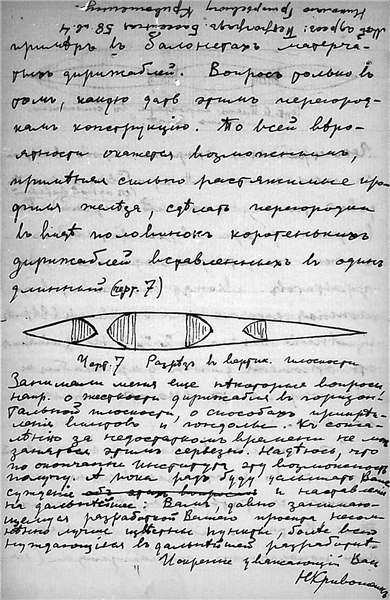 примѣръ въ балонетахъ матерча-
тыхъ дирижаблей. Вопросъ только въ
томъ, какую дать этимъ перегород-
камъ конструкцію. По всей вѣро-
ятности окажется возможнымъ,
примѣняя сильно растяжимые про
филя желѣза, сдѣлать перегородки
въ видѣ половинокъ коротенькихъ
дирижаблей вставленныхъ въ одинъ
длинный (черт. 7)
Черт. 7 Разрѣзъ въ вертик. плоскости
Занимали меня еще нѣкоторые вопросы
напр. о жесткости дирижабля въ горизон-
тальной плоскости, о способахъ прикрѣп-
ленія винтовъ и гондолы. Къ сожа-
лѣнію за недостаткомъ времени не мо
заняться этимъ серьезно. Надѣюсь, что
по окончаніи Института эту возможность
получу. А пока радъ буду услышать Ваше
сужденіе и наставленія
на дальнѣйшее: Вамъ, давно занимаю-
щемуся разработкой Вашего проекта несом-
нѣнно лучше извѣстны пункты, болѣе всего
нуждающіеся въ дальнѣйшей разработкѣ.
Искренне уважающій Васъ